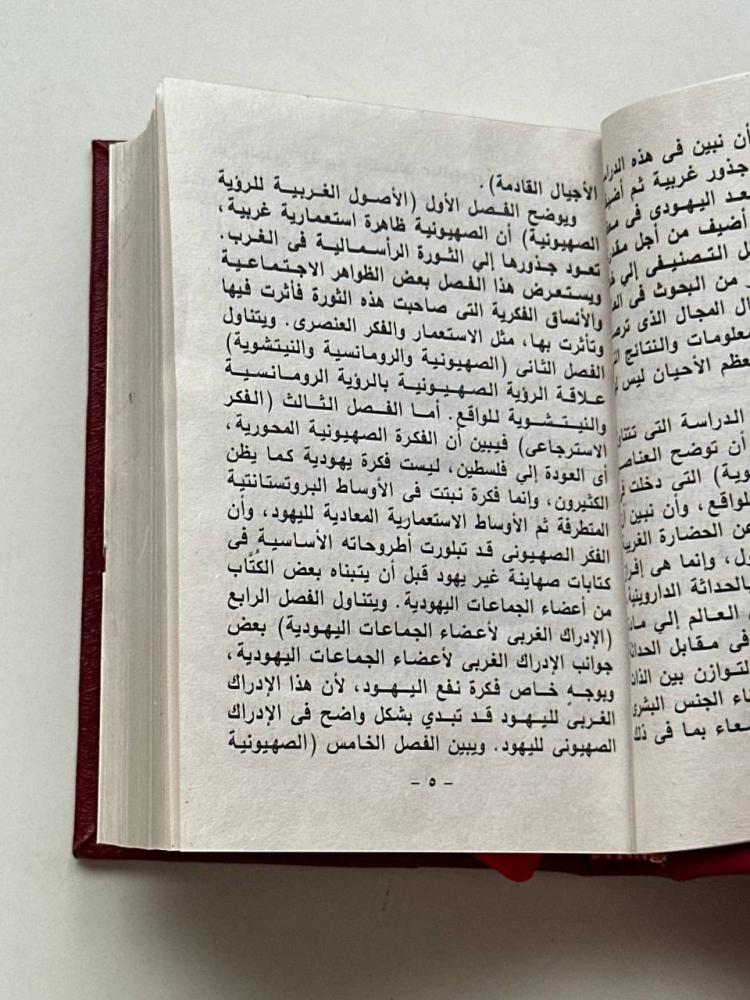 أن نبين فى هذه
جذور غربية ثم
اليهودى فى
أضيف من أجل
التصنيفى إلي
من البحوث فى
المجال الذى
معلومات والنتائج
معظم الأحيان ليس
الدراسة التى
أن توضح
التى دخلت
للواقع، وأن نبين
عن الحضارة
وإنما هى
بالحداثة الداروينية
العالم إلي
فى مقابل
التوازن بين
الجنس البشرى
بما فى ذلك
الأجيال القادمة).
ويوضح الفصل الأول (الأصول الغربية للرؤية
الصهيونية) أن الصهيونية ظاهرة استعمارية غربية،
تعود جذورها إلي الثورة الرأسمالية فى الغرب.
ويستعرض هذا الفصل بعض الظواهر الاجتماعية
والأنساق الفكرية التى صاحبت هذه الثورة فأثرت فيها
وتأثرت بها، مثل الاستعمار والفكر العنصرى. ويتناول
الفصل الثانى (الصهيونية والرومانسية والنيتشوية)
علاقة الرؤية الصهيونية بالرؤية الرومانسية
والنيتشوية للواقع. أما الفصل الثالث (الفكر
الاسترجاعى) فيبين أن الفكرة الصهيونية المحورية،
أى العودة إلي فلسطين، ليست فكرة يهودية كما يظن
الكثيرون، وإنما فكرة نبتت فى الأوساط البروتستانتية
المتطرفة ثم الأوساط الاستعمارية المعادية لليهود، وأن
الفكر الصهيونى قد تبلورت أطروحاته الأساسية فى
كتابات صهاينة غير يهود قبل أن يتبناه بعض الكُتَّاب
من أعضاء الجماعات اليهودية. ويتناول الفصل الرابع
(الإدراك الغربى لأعضاء الجماعات اليهودية) بعض
جوانب الإدراك الغربى لأعضاء الجماعات اليهودية،
وبوجهٍ خاص فكرة نفع اليهود، لأن هذا الإدراك
الغربى لليهود قد تبدي بشكل واضح فى الإدراك
الصهيونى لليهود. ويبين الفصل الخامس (الصهيونية
- ٥ -